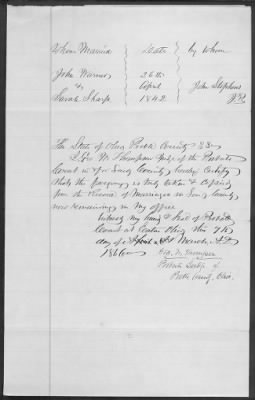 Whom Married Date by whom
John Warner 26th
& April John Stephens
Sarah Sharp 1842 J.P.
The State of Ohio Preble County SS
I Geo W Thompson Judge of the Probate
Court in & for Said County hereby Certify
that the foregoing is truly taken & Copied
from the Record of Marriages in Said County
now remaining in my office
Witness my hand & Seal of Probate
Court at Eaton Ohio this 7th
day of March A.D.
1866
Geo. W. Thompson
Probate Judge of
Preble County, Ohio.